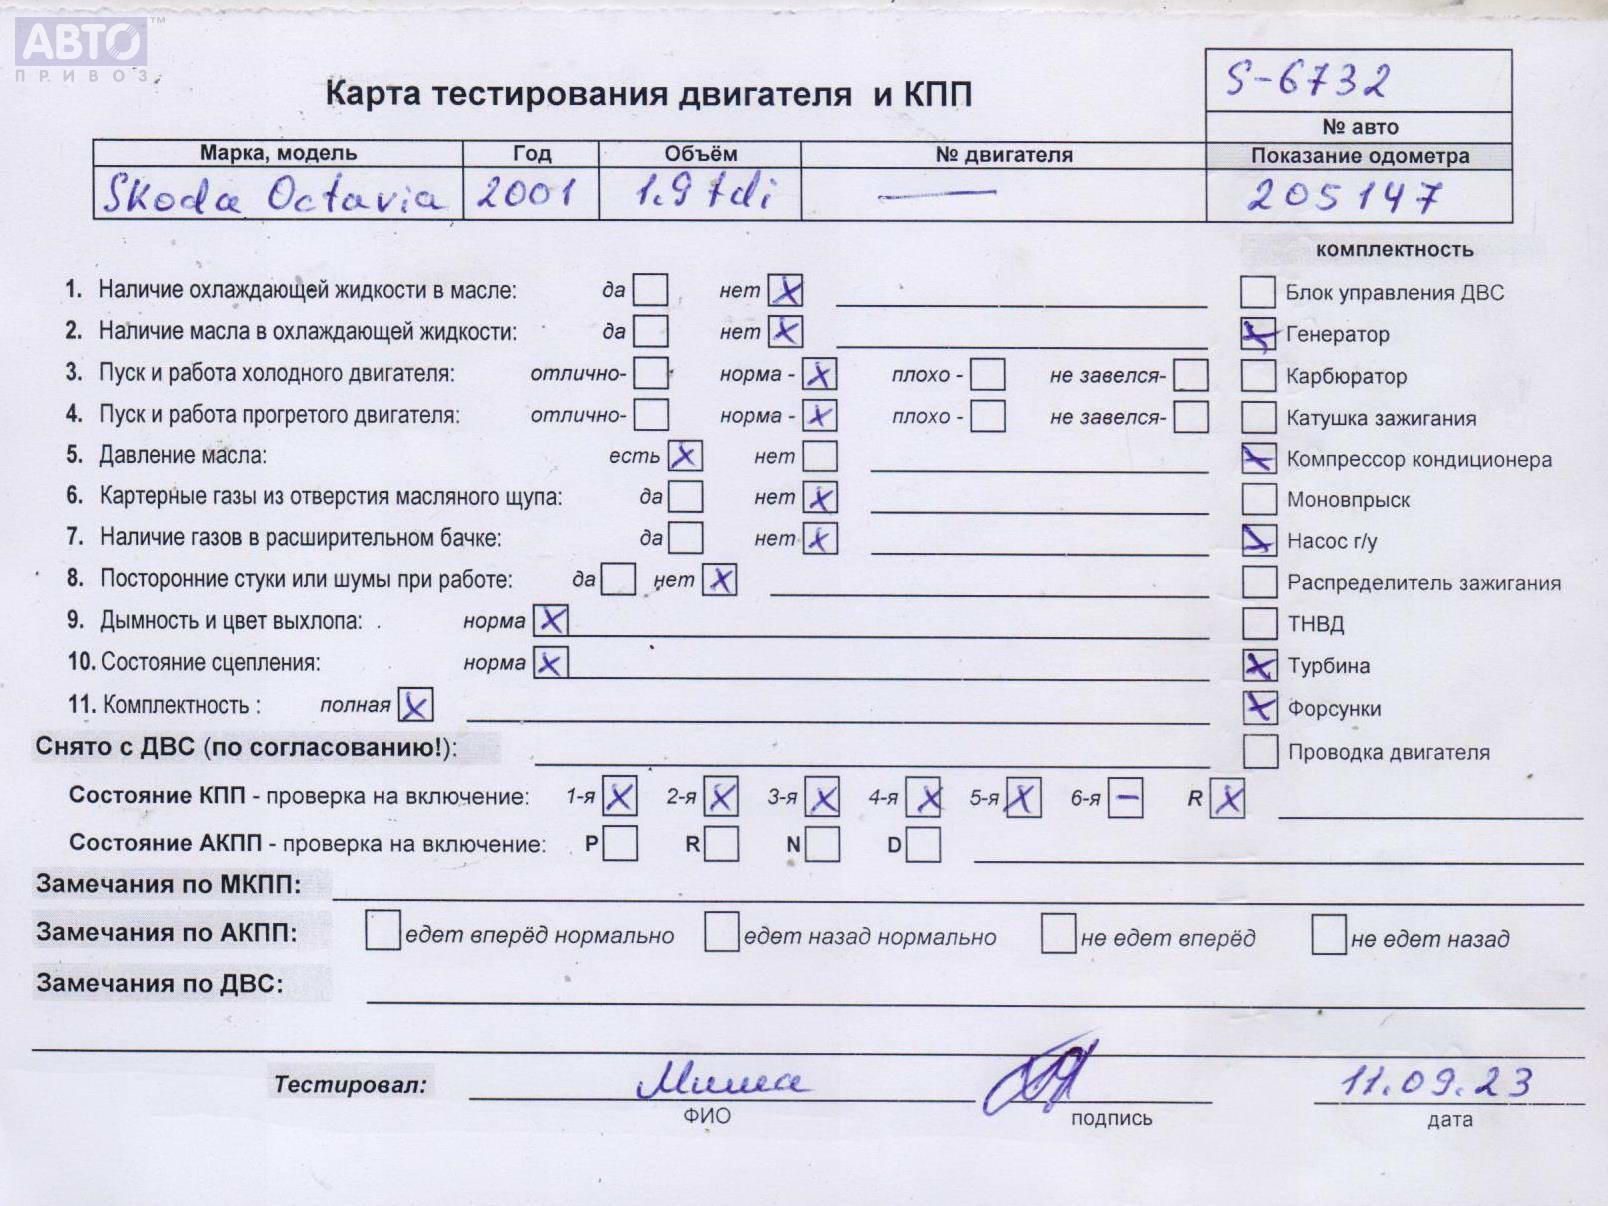 АВТО™
ПРИВОЗ
S-6732
Карта тестирования двигателя и КПП
№ авто
Марка, модель Год Объём № двигателя Показание одометра
Skoda Octavia 2001 1.9 tdi — 205147
комплектность
1. Наличие охлаждающей жидкости в масле: да нет X Блок управления ДВС
2. Наличие масла в охлаждающей жидкости: да нет X X Генератор
3. Пуск и работа холодного двигателя: отлично- норма - X плохо - не завелся- Карбюратор
4. Пуск и работа прогретого двигателя: отлично- норма - X плохо - не завелся- Катушка зажигания
5. Давление масла: есть X нет X Компрессор кондиционера
6. Картерные газы из отверстия масляного щупа: да нет X Моновпрыск
7. Наличие газов в расширительном бачке: да нет X X Насос г/у
8. Посторонние стуки или шумы при работе: да нет X Распределитель зажигания
9. Дымность и цвет выхлопа: норма X ТНВД
10. Состояние сцепления: норма X X Турбина
11. Комплектность : полная X X Форсунки
Снято с ДВС (по согласованию!): Проводка двигателя
Состояние КПП - проверка на включение: 1-я X 2-я X 3-я X 4-я X 5-я X 6-я — R X
Состояние АКПП - проверка на включение: P R N D
Замечания по МКПП:
Замечания по АКПП: едет вперёд нормально едет назад нормально не едет вперёд не едет назад
Замечания по ДВС:
Тестировал: Миша 11.09.23
ФИО подпись дата